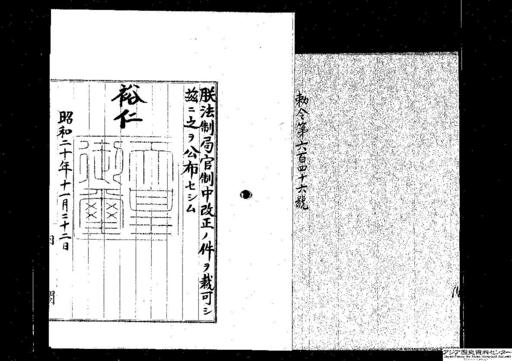 勅令第六百四十六號
朕法制局官制中改正ノ件ヲ裁可シ
茲ニ之ヲ公布セシム
裕仁
天皇御璽
昭和二十年十一月二十二日
内閣
アジア歴史資料センター